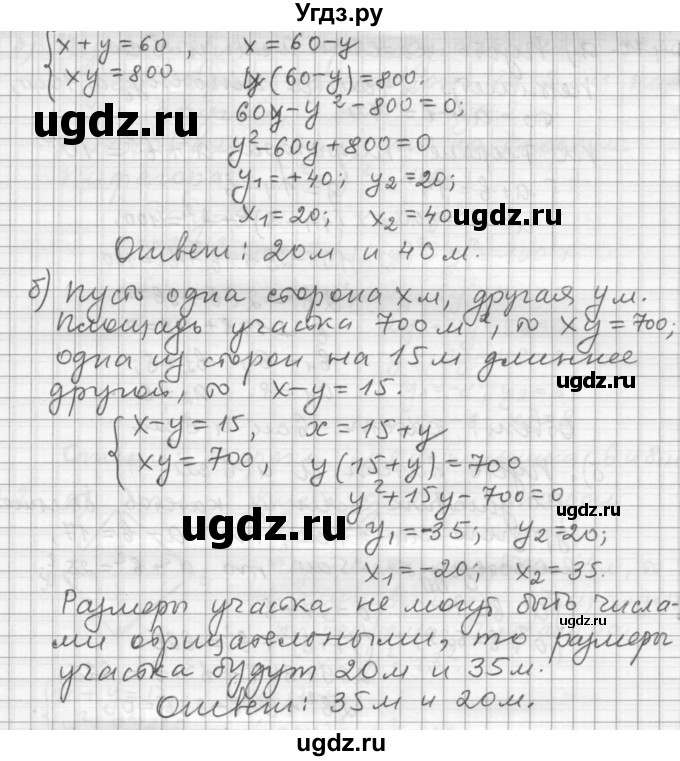 Угдз.ру
{ x + y = 60 , x = 60 - y
xy = 800 y(60 - y) = 800.
ugdz.ru
60y - y² - 800 = 0;
y² - 60y + 800 = 0
y₁ = +40; y₂ = 20;
x₁ = 20; x₂ = 40
ugdz.ru
Ответ: 20м и 40м.
б) Пусть одна сторона x м, другая y м.
Площадь участка 700 м², то xy = 700;
одна из сторон на 15 м длиннее
ugdz.ru
другой, то x - y = 15.
{ x - y = 15, x = 15 + y
xy = 700, y(15 + y) = 700
y² + 15y - 700 = 0
ugdz.ru
ugdz.ru
y₁ = -35; y₂ = 20;
x₁ = -20; x₂ = 35.
Размеры участка не могут быть числа-
ми отрицательными, то размеры
участка будут 20м и 35м.
Ответ: 35м и 20м.
ugdz.ru